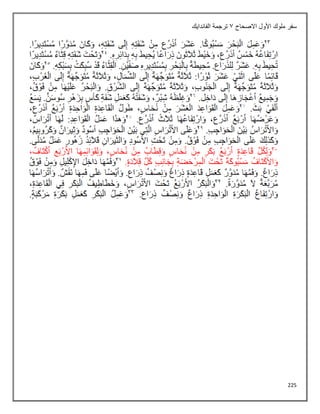 سفر ملوك الأول الاصحاح ٧ ترجمة الفاندايك
²³وَعَمِلَ الْبَحْرَ مَسْبُوكًا. عَشَرَ أَذْرُعٍ مِنْ شَفَتِهِ إِلَى شَفَتِهِ، وَكَانَ مُدَوَّرًا مُسْتَدِيرًا.
ارْتِفَاعُهُ خَمْسُ أَذْرُعٍ، وَخَيْطٌ ثَلاَثُونَ ذِرَاعًا يُحِيطُ بِهِ بِدَائِرِهِ. ²⁴وَتَحْتَ شَفَتِهِ قِثَّاءٌ مُسْتَدِيرًا
تُحِيطُ بِهِ. عَشَرٌ لِلذِّرَاعِ. مُحِيطَةٌ بِالْبَحْرِ بِمُسْتَدِيرِهِ صَفَّيْنِ. الْقِثَّاءُ قَدْ سُبِكَتْ بِسَبْكِهِ. ²⁵وَكَانَ
قَائِمًا عَلَى اثْنَيْ عَشَرَ ثَوْرًا: ثَلاَثَةٌ مُتَوَجِّهَةٌ إِلَى الشِّمَالِ، وَثَلاَثَةٌ مُتَوَجِّهَةٌ إِلَى الْغَرْبِ،
وَثَلاَثَةٌ مُتَوَجِّهَةٌ إِلَى الْجَنُوبِ، وَثَلاَثَةٌ مُتَوَجِّهَةٌ إِلَى الشَّرْقِ. وَالْبَحْرُ عَلَيْهَا مِنْ فَوْقُ،
وَجَمِيعُ أَعْجَازِهَا إِلَى دَاخِل. ²⁶وَغِلَظُهُ شِبْرٌ، وَشَفَتُهُ كَعَمَلِ شَفَةِ كَأْسٍ بِزَهْرِ سُوسَنٍّ. يَسَعُ
أَلْفَيْ بَثٍّ. ²⁷وَعَمِلَ الْقَوَاعِدَ الْعَشْرَ مِنْ نُحَاسٍ، طُولُ الْقَاعِدَةِ الْوَاحِدَةِ أَرْبَعُ أَذْرُعٍ،
وَعَرْضُهَا أَرْبَعُ أَذْرُعٍ، وَارْتِفَاعُهَا ثَلاَثُ أَذْرُعٍ. ²⁸وَهذَا عَمَلُ الْقَوَاعِدِ: لَهَا أَتْرَاسٌ،
وَالأَتْرَاسُ بَيْنَ الْحَوَاجِبِ. ²⁹وَعَلَى الأَتْرَاسِ الَّتِي بَيْنَ الْحَوَاجِبِ أُسُودٌ وَثِيرَانٌ وَكَرُوبِيمُ،
وَكَذلِكَ عَلَى الْحَوَاجِبِ مِنْ فَوْقُ. وَمِنْ تَحْتِ الأُسُودِ وَالثِّيرَانِ قَلاَئِدُ زُهُورٍ عَمَلٌ مُدَلَّى.
³⁰وَلِكُلِّ قَاعِدَةٍ أَرْبَعُ بَكَرٍ مِنْ نُحَاسٍ وَقِطَابٌ مِنْ نُحَاسٍ، وَلِقَوَائِمِهَا الأَرْبَعِ أَكْتَافٌ،
وَالأَكْتَافُ مَسْبُوكَةٌ تَحْتَ الْمِرْحَضَةِ بِجَانِبِ كُلِّ قِلاَدَةٍ. ³¹وَفَمُهَا دَاخِلَ الإِكْلِيلِ وَمِنْ فَوْقُ
ذِرَاعٌ. وَفَمُهَا مُدَوَّرٌ كَعَمَلِ قَاعِدَةٍ ذِرَاعٌ وَنِصْفُ ذِرَاعٍ. وَأَيْضًا عَلَى فَمِهَا نَقْشٌ. وَأَتْرَاسُهَا
مُرَبَّعَةٌ لاَ مُدَوَّرَةٌ. ³²وَالْبَكَرُ الأَرْبَعُ تَحْتَ الأَتْرَاسِ، وَخَطَاطِيفُ الْبَكَرِ فِي الْقَاعِدَةِ،
وَارْتِفَاعُ الْبَكَرَةِ الْوَاحِدَةِ ذِرَاعٌ وَنِصْفُ ذِرَاعٍ. ³³وَعَمَلُ الْبَكَرِ كَعَمَلِ بَكَرَةِ مَرْكَبَةٍ.
225